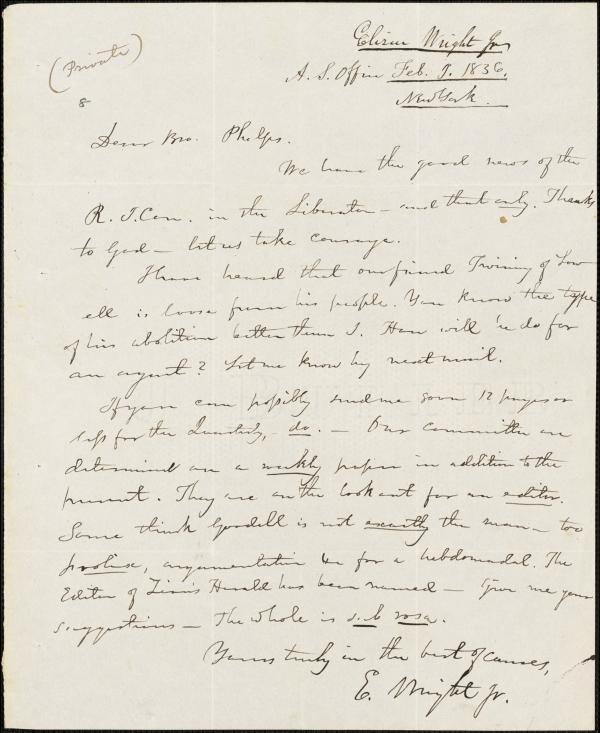 Elizur Wright Jr
(Private)
A. S. Office Feb. 9. 1836.
New York.
8
Dear Bro. Phelps.
We have the good news of the
R. I. Con. in the Liberator – and that only. Thanks
to God – let us take courage.
I have heard that our friend Twining of Low
ell is loose from his people. You know the type
of his abolition better than I. How will he do for
an agent? Let me know by next mail.
If you can possibly send me some 12 pages or
less for the Quarterly, do. – Our committee are
determined on a weekly paper in addition to the
present. They are on the look out for an editor.
Some think Goodell is not exactly the man – too
prolix, argumentative &c for a hebdomadal. The
Editor of Zion's Herald has been named – Give me your
suggestions – The whole is sub rosa.
Yours truly in the best of causes,
E. Wright Jr.